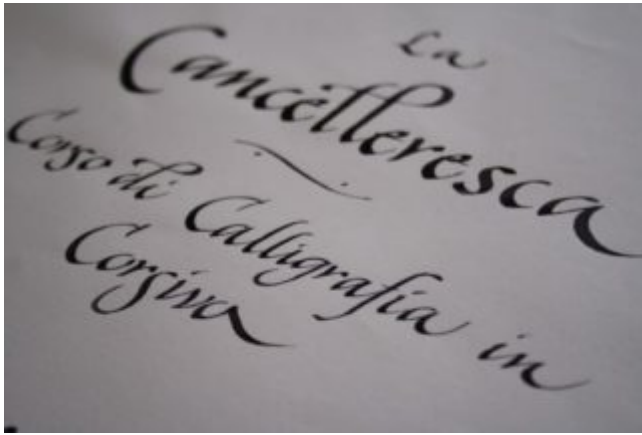 La
Cancelleresca
Corso di Calligrafia in
Corsiva